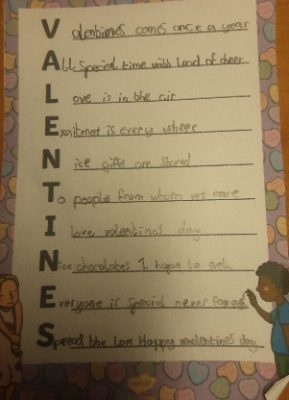 Valentines comes once a year
All special time with load of cheer
Love is in the air
Exsitmot is every where
Nice gifts are shared
To people from whom we care
I love valentines day
Nice chocolates I hope to get
Everyone is special never forget
Spread the love Happy valentines day